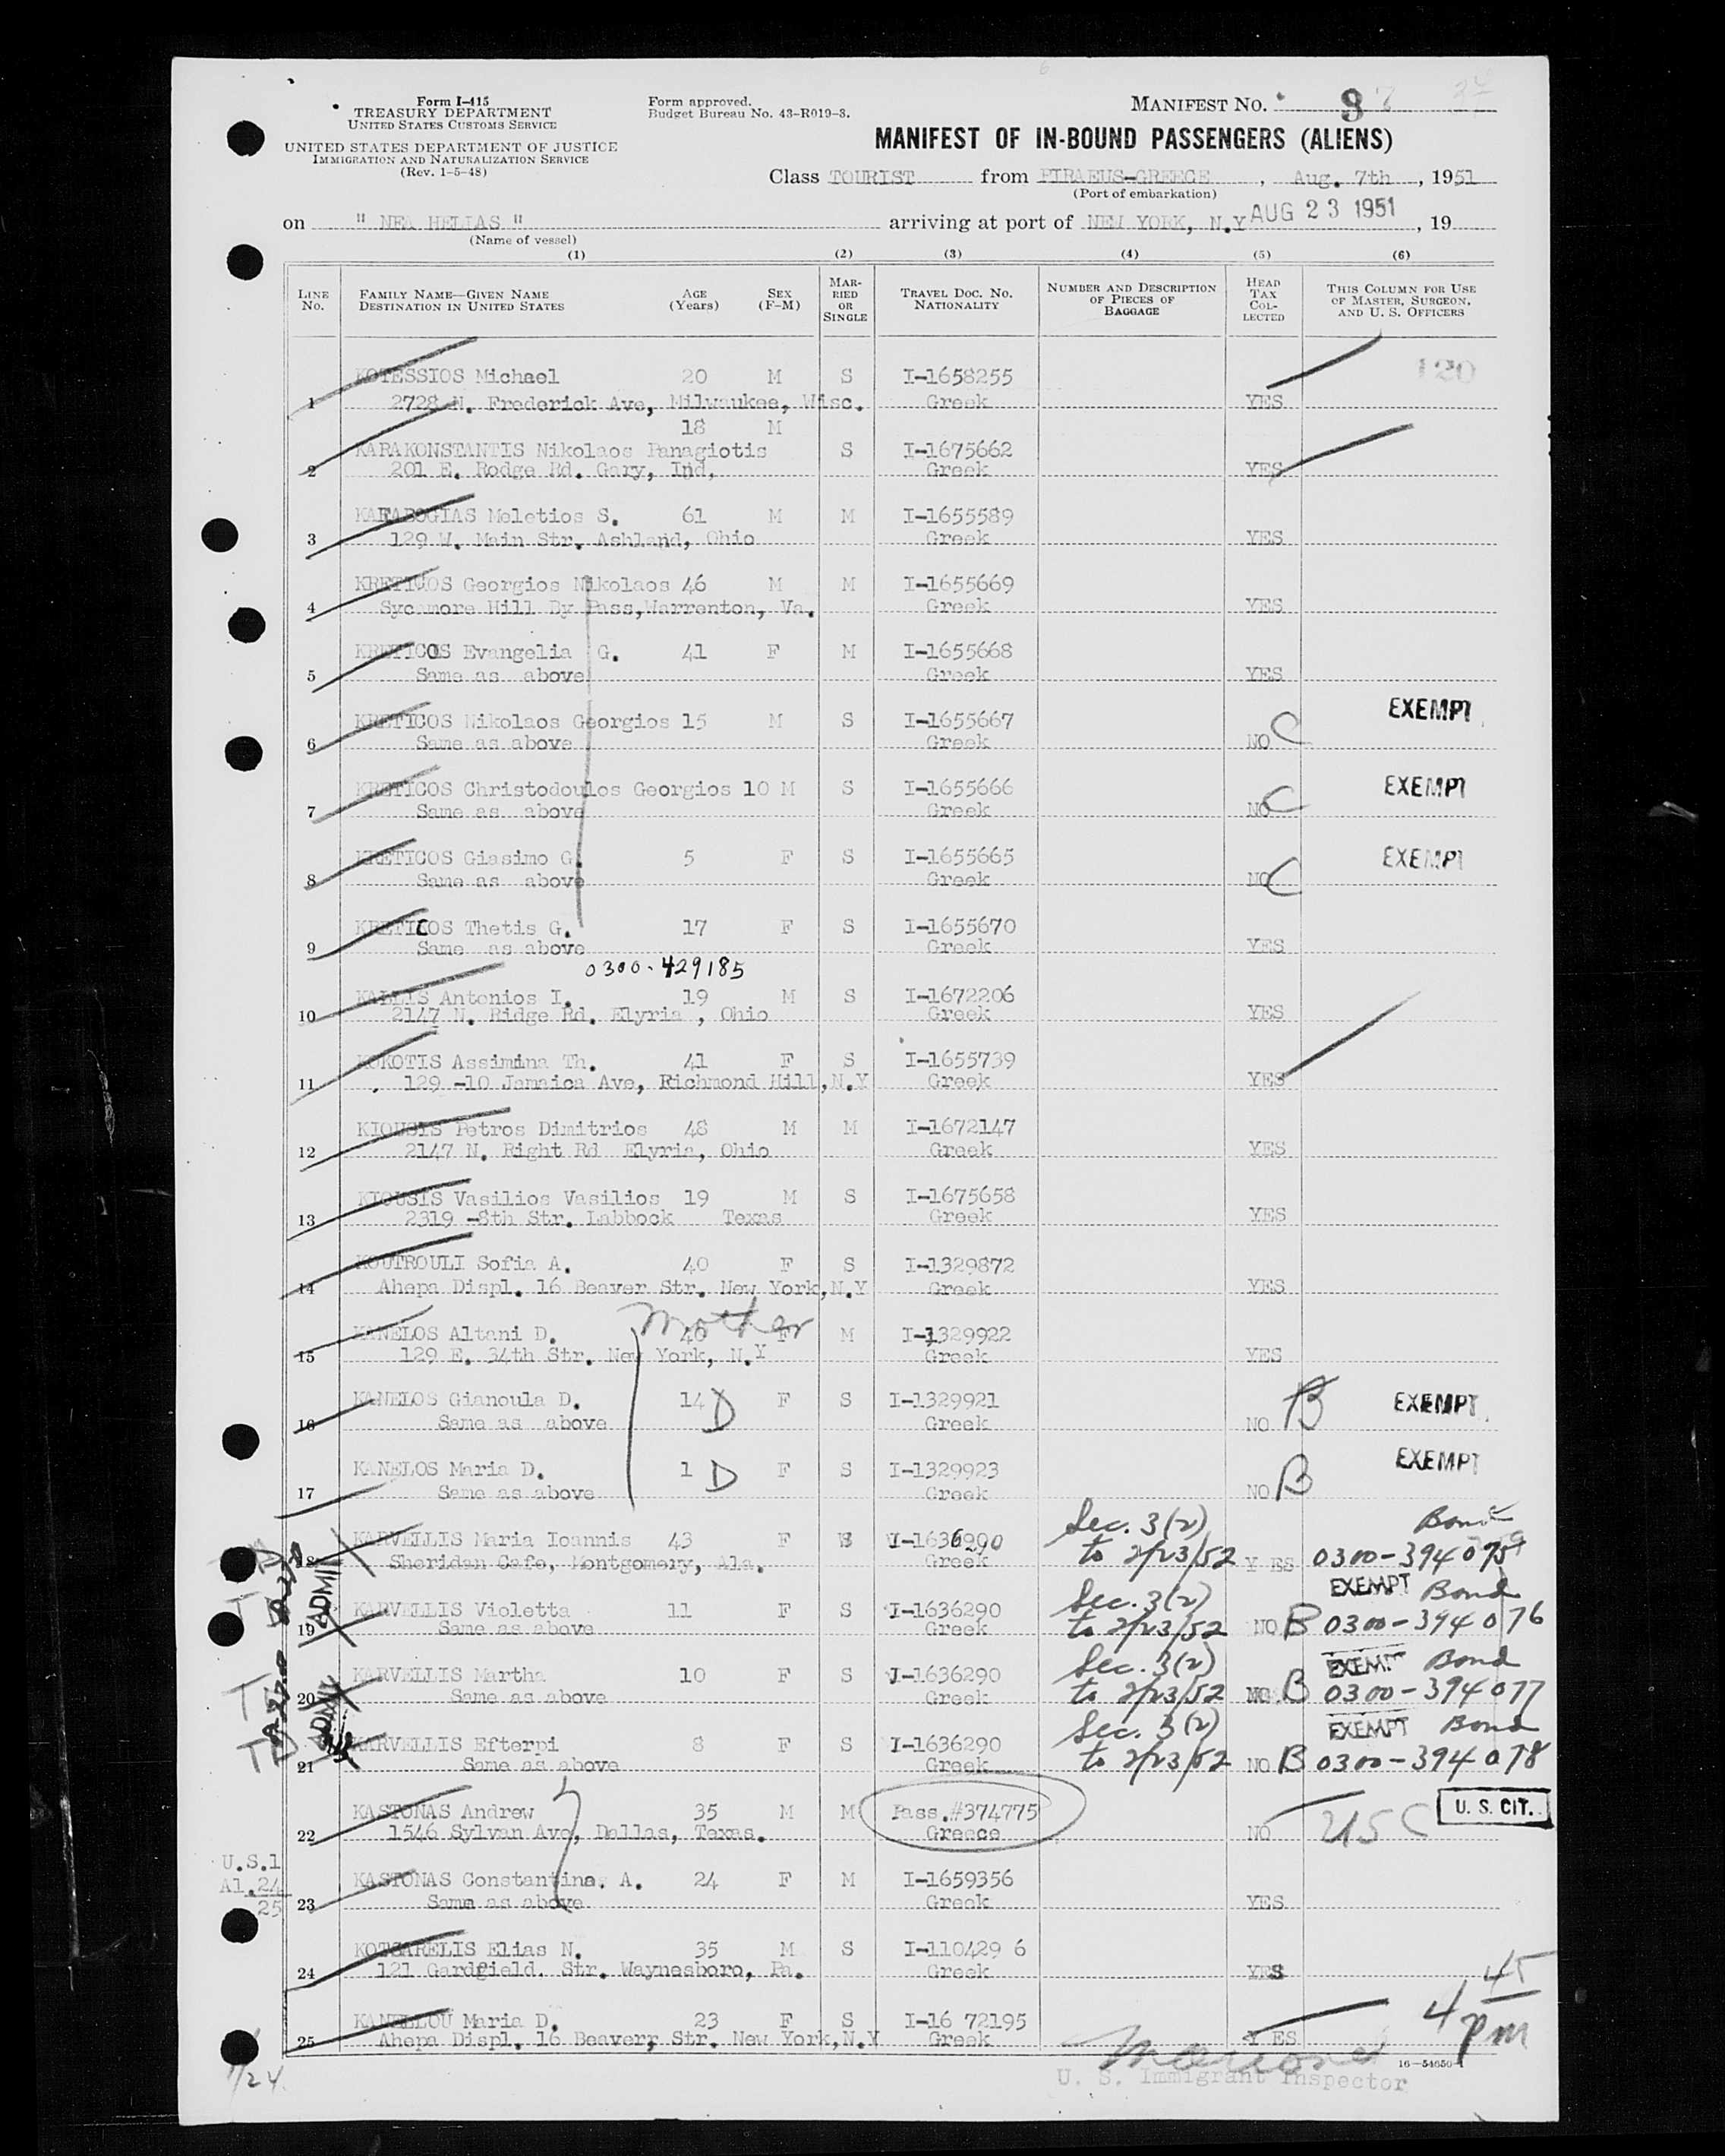 Form I-415
TREASURY DEPARTMENT
UNITED STATES CUSTOMS SERVICE
UNITED STATES DEPARTMENT OF JUSTICE
IMMIGRATION AND NATURALIZATION SERVICE
(Rev. 1-5-48)
Form approved.
Budget Bureau No. 43-R019-3.
MANIFEST NO. 8
MANIFEST OF IN-BOUND PASSENGERS (ALIENS)
Class TOURIST from PIRAEUS-GREECE, Aug. 7th, 1951
(Port of embarkation)
on " NEA HELLAS " arriving at port of NEW YORK, N.Y AUG 23 1951, 19
(Name of vessel)
(1) (2) (3) (4) (5) (6)
LINE NO. FAMILY NAME—GIVEN NAME DESTINATION IN UNITED STATES AGE (Years) SEX (F-M) MARRIED OR SINGLE TRAVEL DOC. NO. NATIONALITY NUMBER AND DESCRIPTION OF PIECES OF BAGGAGE HEAD TAX COLLECTED THIS COLUMN FOR USE OF MASTER, SURGEON, AND U. S. OFFICERS
120
KOTESSIOS Michael 20 M S I-1658255
1 2728 N. Frederick Ave, Milwaukee, Wisc. Greek YES
18 M
KARAKONSTANTIS Nikolaos Panagiotis S I-1675662
2 201 E. Rodge Rd. Gary, Ind, Greek YES
KARABOGIAS Meletios S. 61 M M I-1655589
3 129 W. Main Str. Ashland, Ohio Greek YES
KRETICOS Georgios Nikolaos 46 M M I-1655669
4 Sycamore Hill By Pass,Warrenton, Va. Greek YES
KRETICOS Evangelia G. 41 F M I-1655668
5 Same as above Greek YES
KRETICOS Nikolaos Georgios 15 M S I-1655667 EXEMPT
6 Same as above Greek NO C
KRETICOS Christodoulos Georgios 10 M S I-1655666 EXEMPT
7 Same as above Greek NO C
KRETICOS Giasimo G. 5 F S I-1655665 EXEMPT
8 Same as above Greek NO C
KRETICOS Thetis G. 17 F S I-1655670
9 Same as above Greek YES
0300-429185
KALLIS Antonios I. 19 M S I-1672206
10 2147 N. Ridge Rd. Elyria , Ohio Greek YES
KOKOTIS Assimina Th. 41 F S I-1655739
11 129 -10 Jamaica Ave, Richmond Hill,N.Y Greek YES
KIOUSIS Petros Dimitrios 48 M M I-1672147
12 2147 N. Right Rd Elyria, Ohio Greek YES
KIOUSIS Vasilios Vasilios 19 M S I-1675658
13 2319 -8th Str. Labbock Texas Greek YES
KOUTROULI Sofia A. 40 F S I-1329872
14 Ahepa Displ. 16 Beaver Str. New York,N.Y Greek YES
Mother
KANELOS Altani D. 40 F M I-1329922
15 129 E. 34th Str. New York, N.Y Greek YES
KANELOS Gianoula D. 14 D F S I-1329921 EXEMPT
16 Same as above Greek NO B
KANELOS Maria D. 1 D F S I-1329923 EXEMPT
17 Same as above Greek NO B
KARVELLIS Maria Ioannis 43 F I-1636290 Sec. 3(2) Bond
18 Sheridan Cafe, Montgomery, Ala. Greek to 2/23/52 Y ES 0300-394075
KARVELLIS Violetta 11 F S I-1636290 Sec. 3(2) EXEMPT Bond
19 Same as above Greek to 2/23/52 NO B 0300-394076
KARVELLIS Martha 10 F S I-1636290 Sec. 3(2) EXEMPT Bond
20 Same as above Greek to 2/23/52 NO B 0300-394077
KARVELLIS Efterpi 8 F S I-1636290 Sec. 3(2) EXEMPT Bond
21 Same as above Greek to 2/23/52 NO B 0300-394078
KASTONAS Andrew 35 M M Pass.#374775 USC U. S. CIT.
22 1546 Sylvan Ave, Dallas, Texas. Greece NO
U.S.1
Al.24
25
KASTONAS Constantina. A. 24 F M I-1659356
23 Same as above Greek YES
KOTSARELIS Elias N. 35 M S I-110429 6
24 121 Gardfield. Str. Waynesboro, Pa. Greek YES
KANELLOU Maria D. 23 F S I-16 72195
25 Ahepa Displ. 16 Beaverr Str. New York,N.Y Greek Y ES
4 45 pm
1/24
U. S. Immigrant Inspector
16—54650-1